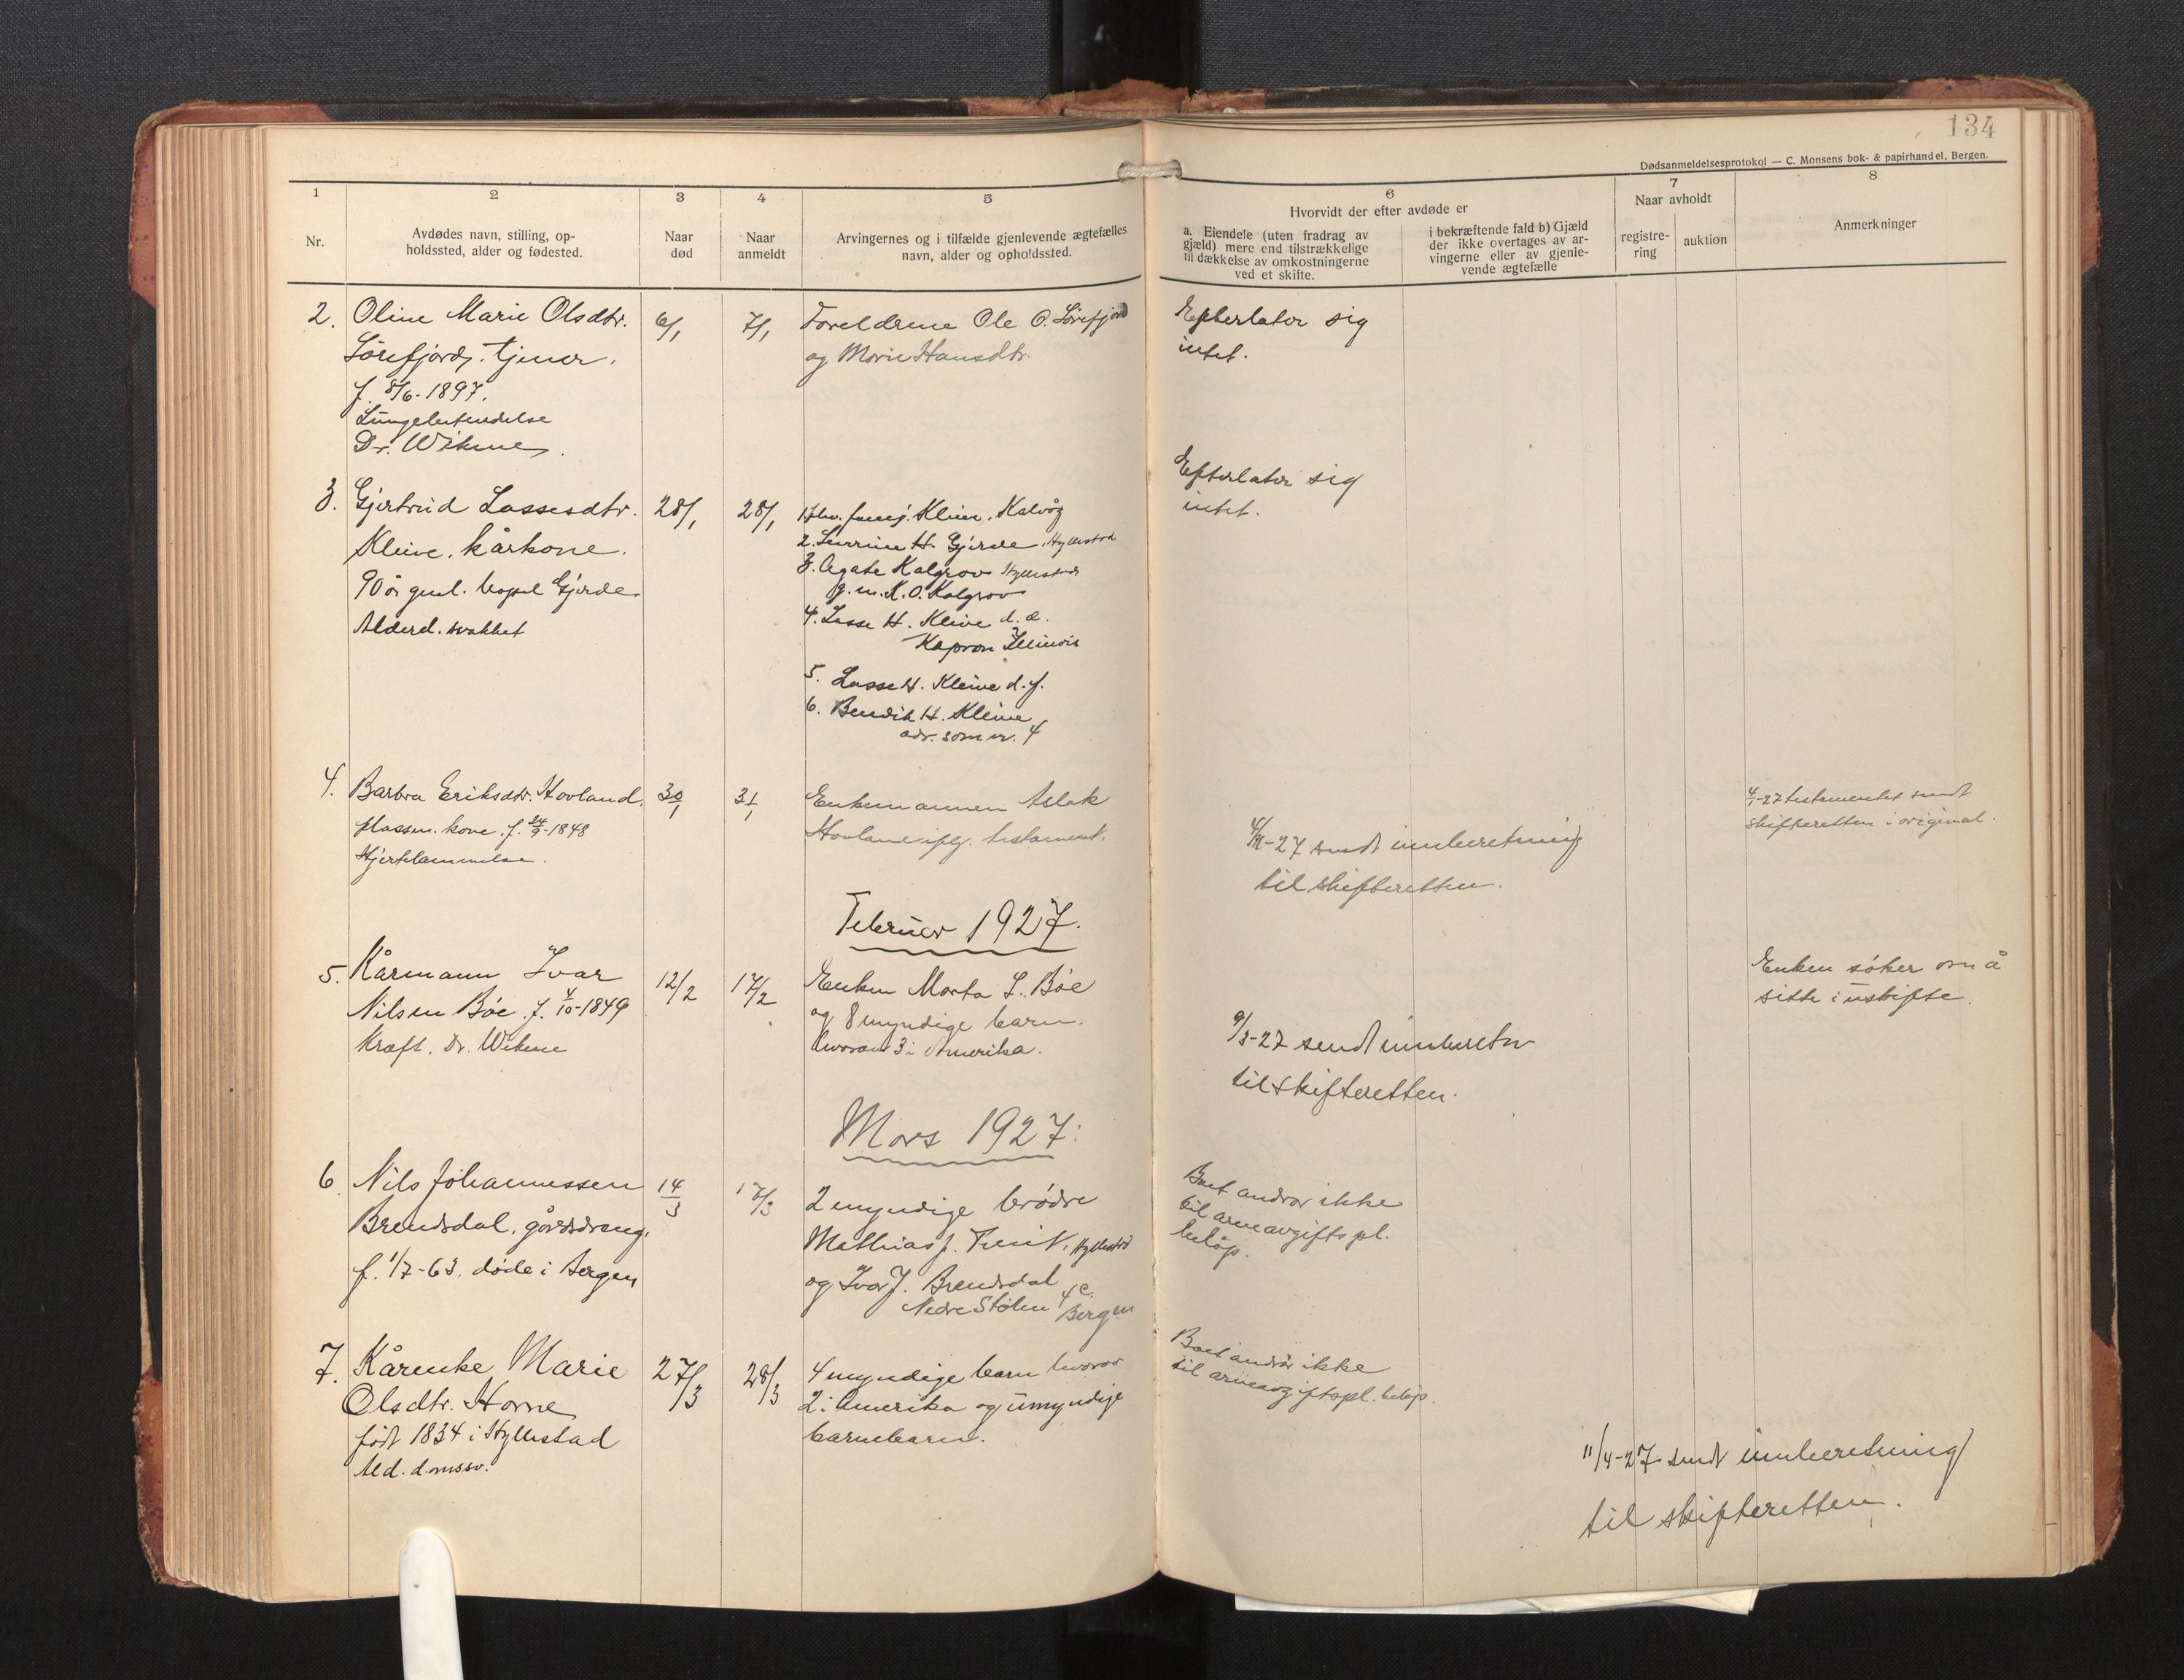 134
Dødsanmeldelsesprotokol — C. Monsens bok- & papirhandel, Bergen.
1 2 3 4 5 6 7 8
Nr.
Avdødes navn, stilling, op-
holdssted, alder og fødested.
Naar
død
Naar
anmeldt
Arvingernes og i tilfælde gjenlevende ægtefælles
navn, alder og opholdssted.
Hvorvidt der efter avdøde er
a. Eiendele (uten fradrag av
gjæld) mere end tilstrækkelige
til dækkelse av omkostningerne
ved et skifte.
i bekræftende fald b) Gjæld
der ikke overtages av ar-
vingerne eller av gjenle-
vende ægtefælle
Naar avholdt
registre-
ring
auktion
Anmerkninger
2. Oline Marie Olsdtr. 6/1 7/1 Foreldrene Ole O. Sörefjord
Sörefjord, tjener. og Marie Hansdtr.
f. 8/6-1897.
Lungebetendelse
Dr. Wikene
Efterlater sig
intet.
3. Gjertrud Lassesdtr. 28/1 28/1
Kleive, kårkone.
90 år gml. Gjerde
Alderd. svakhet
Kleive, Kalvåg
2. H. Gjerde, Hyllestad
3. Agate Kolgrov Hyllestad
g. m. K. O. Kolgrov
4. Lasse H. Kleive d. e.
Illinois
5. Lasse H. Kleive d. y.
6. Bendik H. Kleive
adr. som nr. 4
Efterlater sig
intet.
4. Barbra Eriksdtr. Hovland 30/1 31/1 Enkemannen Aslak
plassm. kone. f. 24/9-1848 Hovland iflg. testament.
Hjertelammelse.
-27 sendt innberetning
til skifteretten.
-27 testamentet sendt
skifteretten i original.
Februar 1927.
5. Kårmann Ivar 12/2 17/2 Enken Marta L. Böe
Nilsen Böe. f. 4/10-1849 og 8 myndige barn.
Kræft. Dr. Wikene hvorav 3 i Amerika.
9/3-27 sendt innberetn
til skifteretten.
Enken söker om å
sitte i uskifte.
Mars 1927:
6. Nils Johannessen 14/3 2 myndige brödre
Brendsdal, gårdsdreng.
f. 1/7-63. döde i Bergen
Mathias J. Hyllestad
og Ivar J. Brendsdal
Nedre Stölen 4 c.
Bergen
Boet andrar ikke
til arveavgiftspl.
belöp.
7. Kårenke Marie 27/3 28/3 4 myndige barn hvorav
Olsdtr. Horne 2 i Amerika og umyndige
født 1834 i Hyllestad barnebarn.
Ald. domssv.
Boet andrar ikke
til arveavgiftspl. belöp.
11/4-27 sendt innberetning
til skifteretten.